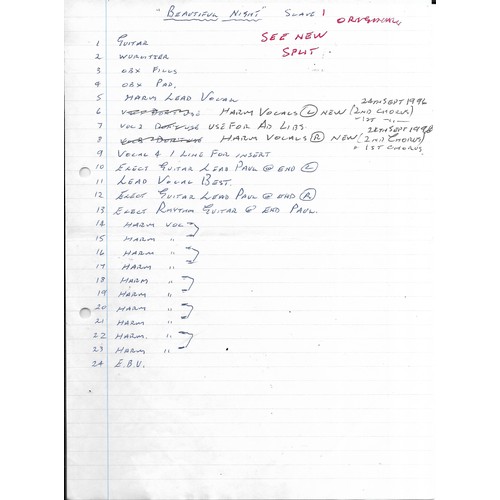 "BEAUTIFUL NIGHT" SLAVE 1 ORIGINAL
SEE NEW
SPLIT.
1 GUITAR
2 WURLITZER
3 OBX FILLS
4 OBX PAD.
5 HARM LEAD VOCAL
26TH SEPT 1996
6 HARM VOCALS (L) NEW (2ND CHORUS)
- 1ST -"-
26TH SEPT 1996
7 VOL 2 USE FOR AD LIBS.
8 HARM VOCALS (R) NEW (2ND CHORUS)
+ 1ST CHORUS.
9 VOCAL 4 1 LINE FOR INSERT
10 ELECT GUITAR LEAD PAUL @ END (L)
11 LEAD VOCAL BEST.
12 ELECT GUITAR LEAD PAUL @ END (R)
13 ELECT RHYTHM GUITAR @ END PAUL.
14 HARM VOC
15 HARM "
16 HARM "
17 HARM "
18 HARM "
19 HARM "
20 HARM "
21 HARM "
22 HARM. "
23 HARM "
24 E.B.U.